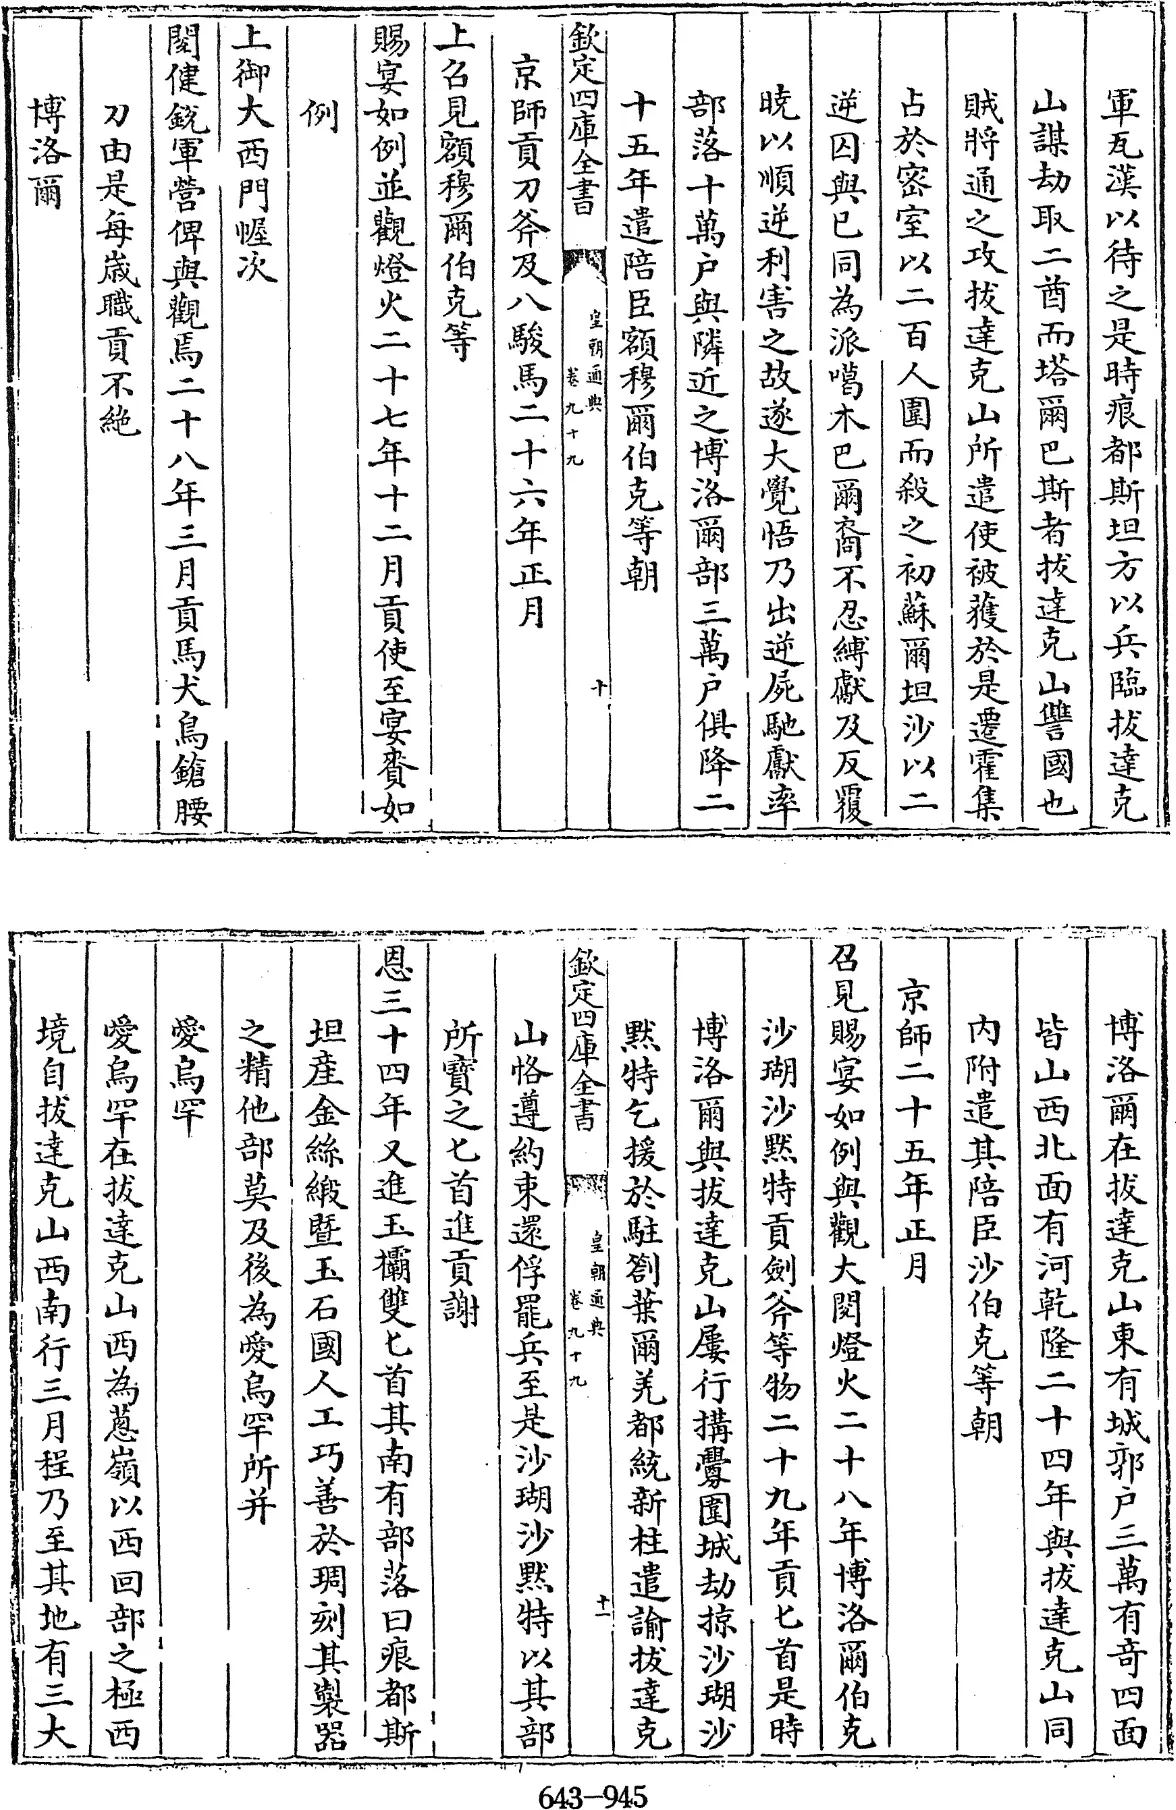 軍瓦漢以待之是時痕都斯坦方以兵臨拔達克
山謀劫取二酋而塔爾巴斯者拔達克山讐國也
賊將通之攻拔達克山所遣使被獲於是遷霍集
占於密室以二百人圍而殺之初蘇爾坦沙以二
逆囚與已同為派噶木巴爾裔不忍縛獻及反覆
曉以順逆利害之故遂大覺悟乃出逆屍馳獻率
部落十萬户與隣近之博洛爾部三萬户俱降二
十五年遣陪臣額穆爾伯克等朝
欽定四庫全書 皇朝通典 卷九十九 十
京師貢刀斧及八駿馬二十六年正月
上召見額穆爾伯克等
賜宴如例並觀燈火二十七年十二月貢使至宴賚如
例
上御大西門幄次
閱健銳軍營俾與觀焉二十八年三月貢馬犬鳥鎗腰
刀由是每歲職貢不絶
博洛爾
博洛爾在拔達克山東有城郭户三萬有奇四面
皆山西北面有河乾隆二十四年與拔達克山同
内附遣其陪臣沙伯克等朝
京師二十五年正月
召見賜宴如例與觀大閱燈火二十八年博洛爾伯克
沙瑚沙黙特貢劍斧等物二十九年貢匕首是時
博洛爾與拔達克山屢行搆釁圍城劫掠沙瑚沙
黙特乞援於駐劄葉爾羌都統新柱遣諭拔達克
欽定四庫全書 皇朝通典 卷九十九 十一
山恪遵約束還俘罷兵至是沙瑚沙黙特以其部
所寶之匕首進貢謝
恩三十四年又進玉欛雙匕首其南有部落曰痕都斯
坦産金絲緞暨玉石國人工巧善於琱刻其製器
之精他部莫及後為愛烏罕所并
愛烏罕
愛烏罕在拔達克山西為蔥嶺以西回部之極西
境自拔達克山西南行三月程乃至其地有三大
643-945